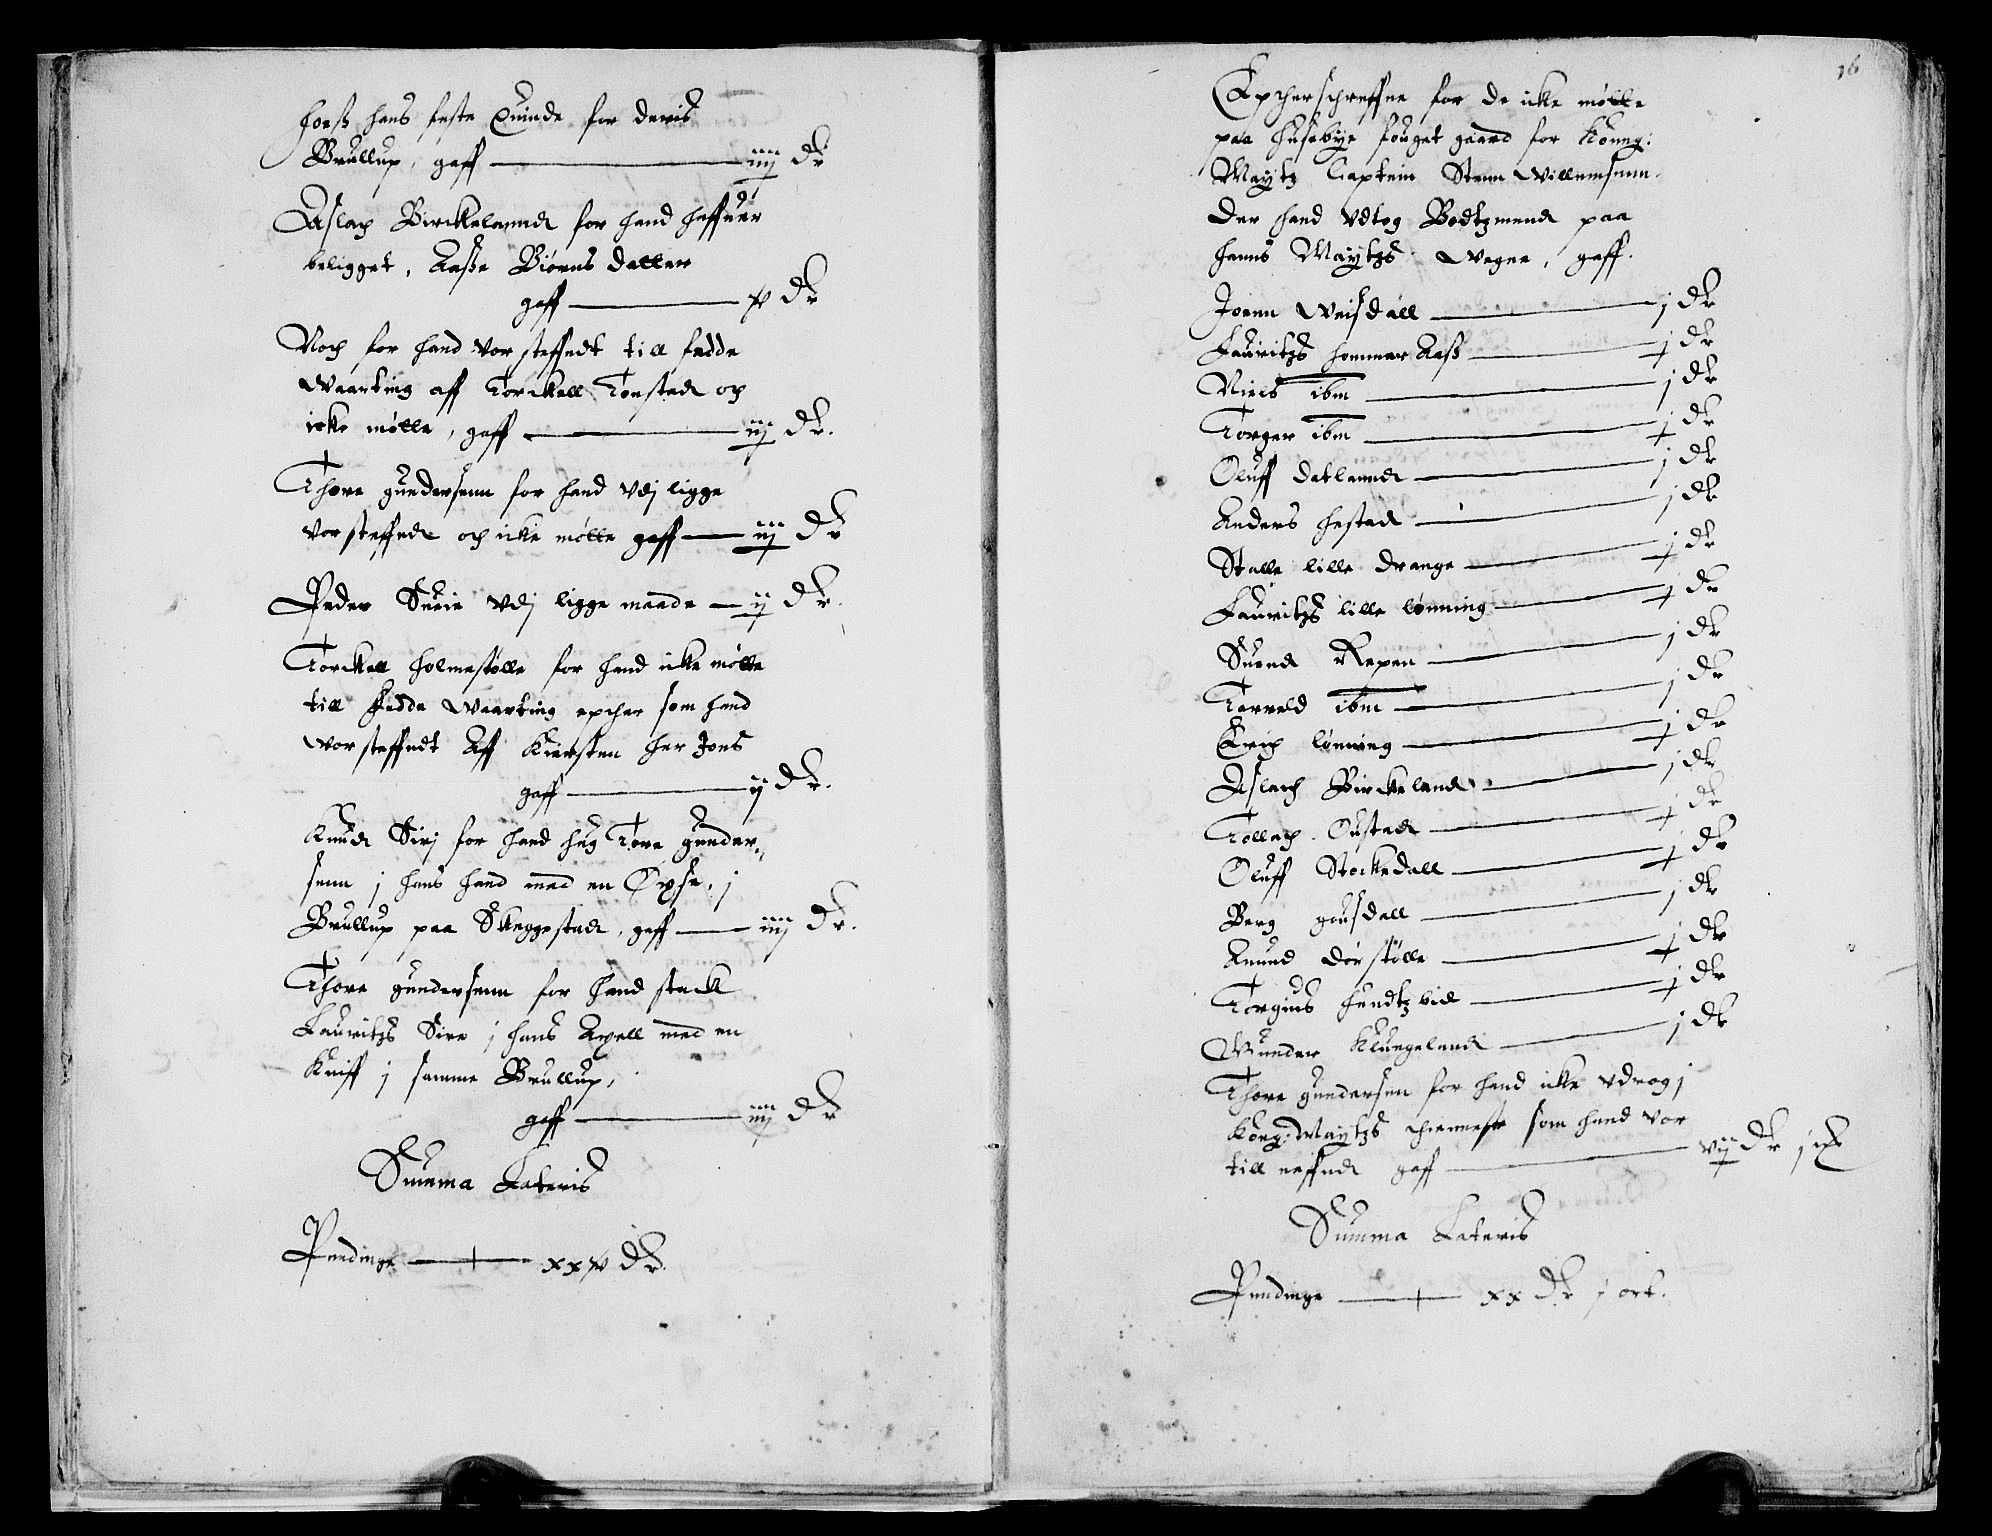 hoeß hans feste Quinde for deris
Brullup, gaff iiij Dr
Aslach Birckelannd for hand haffuer
beligget, Aaße Biørns datter
gaff Dr
Noch for hand vor steffnedt till fædde
Waarting aff Torckell Tonstad och
icke mølte, gaff ij Dr.
Thore gundersenn for hand vdj ligge
vor steffned och icke mølte gaff iij Dr
Peder Sueie vdj ligge maade ij Dr.
Torckell holmestølle for hand icke mølte
till Fedde Waarting epther som hand
vor steffnedt Aff Kiersten her Jons
gaff ij Dr.
Knud Sirj for hand hug Tore gunder
senn j hans hand med en Øxse, j
Brullup paa Skeggestad, gaff iiij Dr.
Thore gundersenn for hand stack
Lauritzs Sire j hans Axell med en
Kniff j samme Brullup,
gaff iiij Dr
Summa Lateris
Pendinge xxv Dr.
16
Epcherschreffne for de icke mølte
paa husebye fouget gaard for Konng:
Maytz Captein Stenn Willumsenn.
der hand vdtog Bodtzmend paa
hanns Maytzs Wegne, gaff.
Joenn Weisdall j Dr
Lauritzs hommer Aaß j Dr
Niels ibm j Dr
Torger ibm j Dr
Oluff datlannd j Dr
Anders hestad j Dr
Stalle lille drange j Dr
Lauritzs lille lønning j Dr
Suend Repen j Dr
Tarreld ibm j Dr
Erich lønning j Dr
Aslach Birckeland j Dr
Tollach Oustad j Dr
Oluff Stockedall j Dr
Berg gousdall j Dr
Anund dørstølle j Dr
Torgius hundtzvid j Dr
Gunder Klungeland j Dr
Thore gundersen for hand icke vdrog j
Kong: Maytzs thienneste som hand vor
till neffnd gaff vij Dr j
Summa Lateris
Pendinge xx Dr j ort.